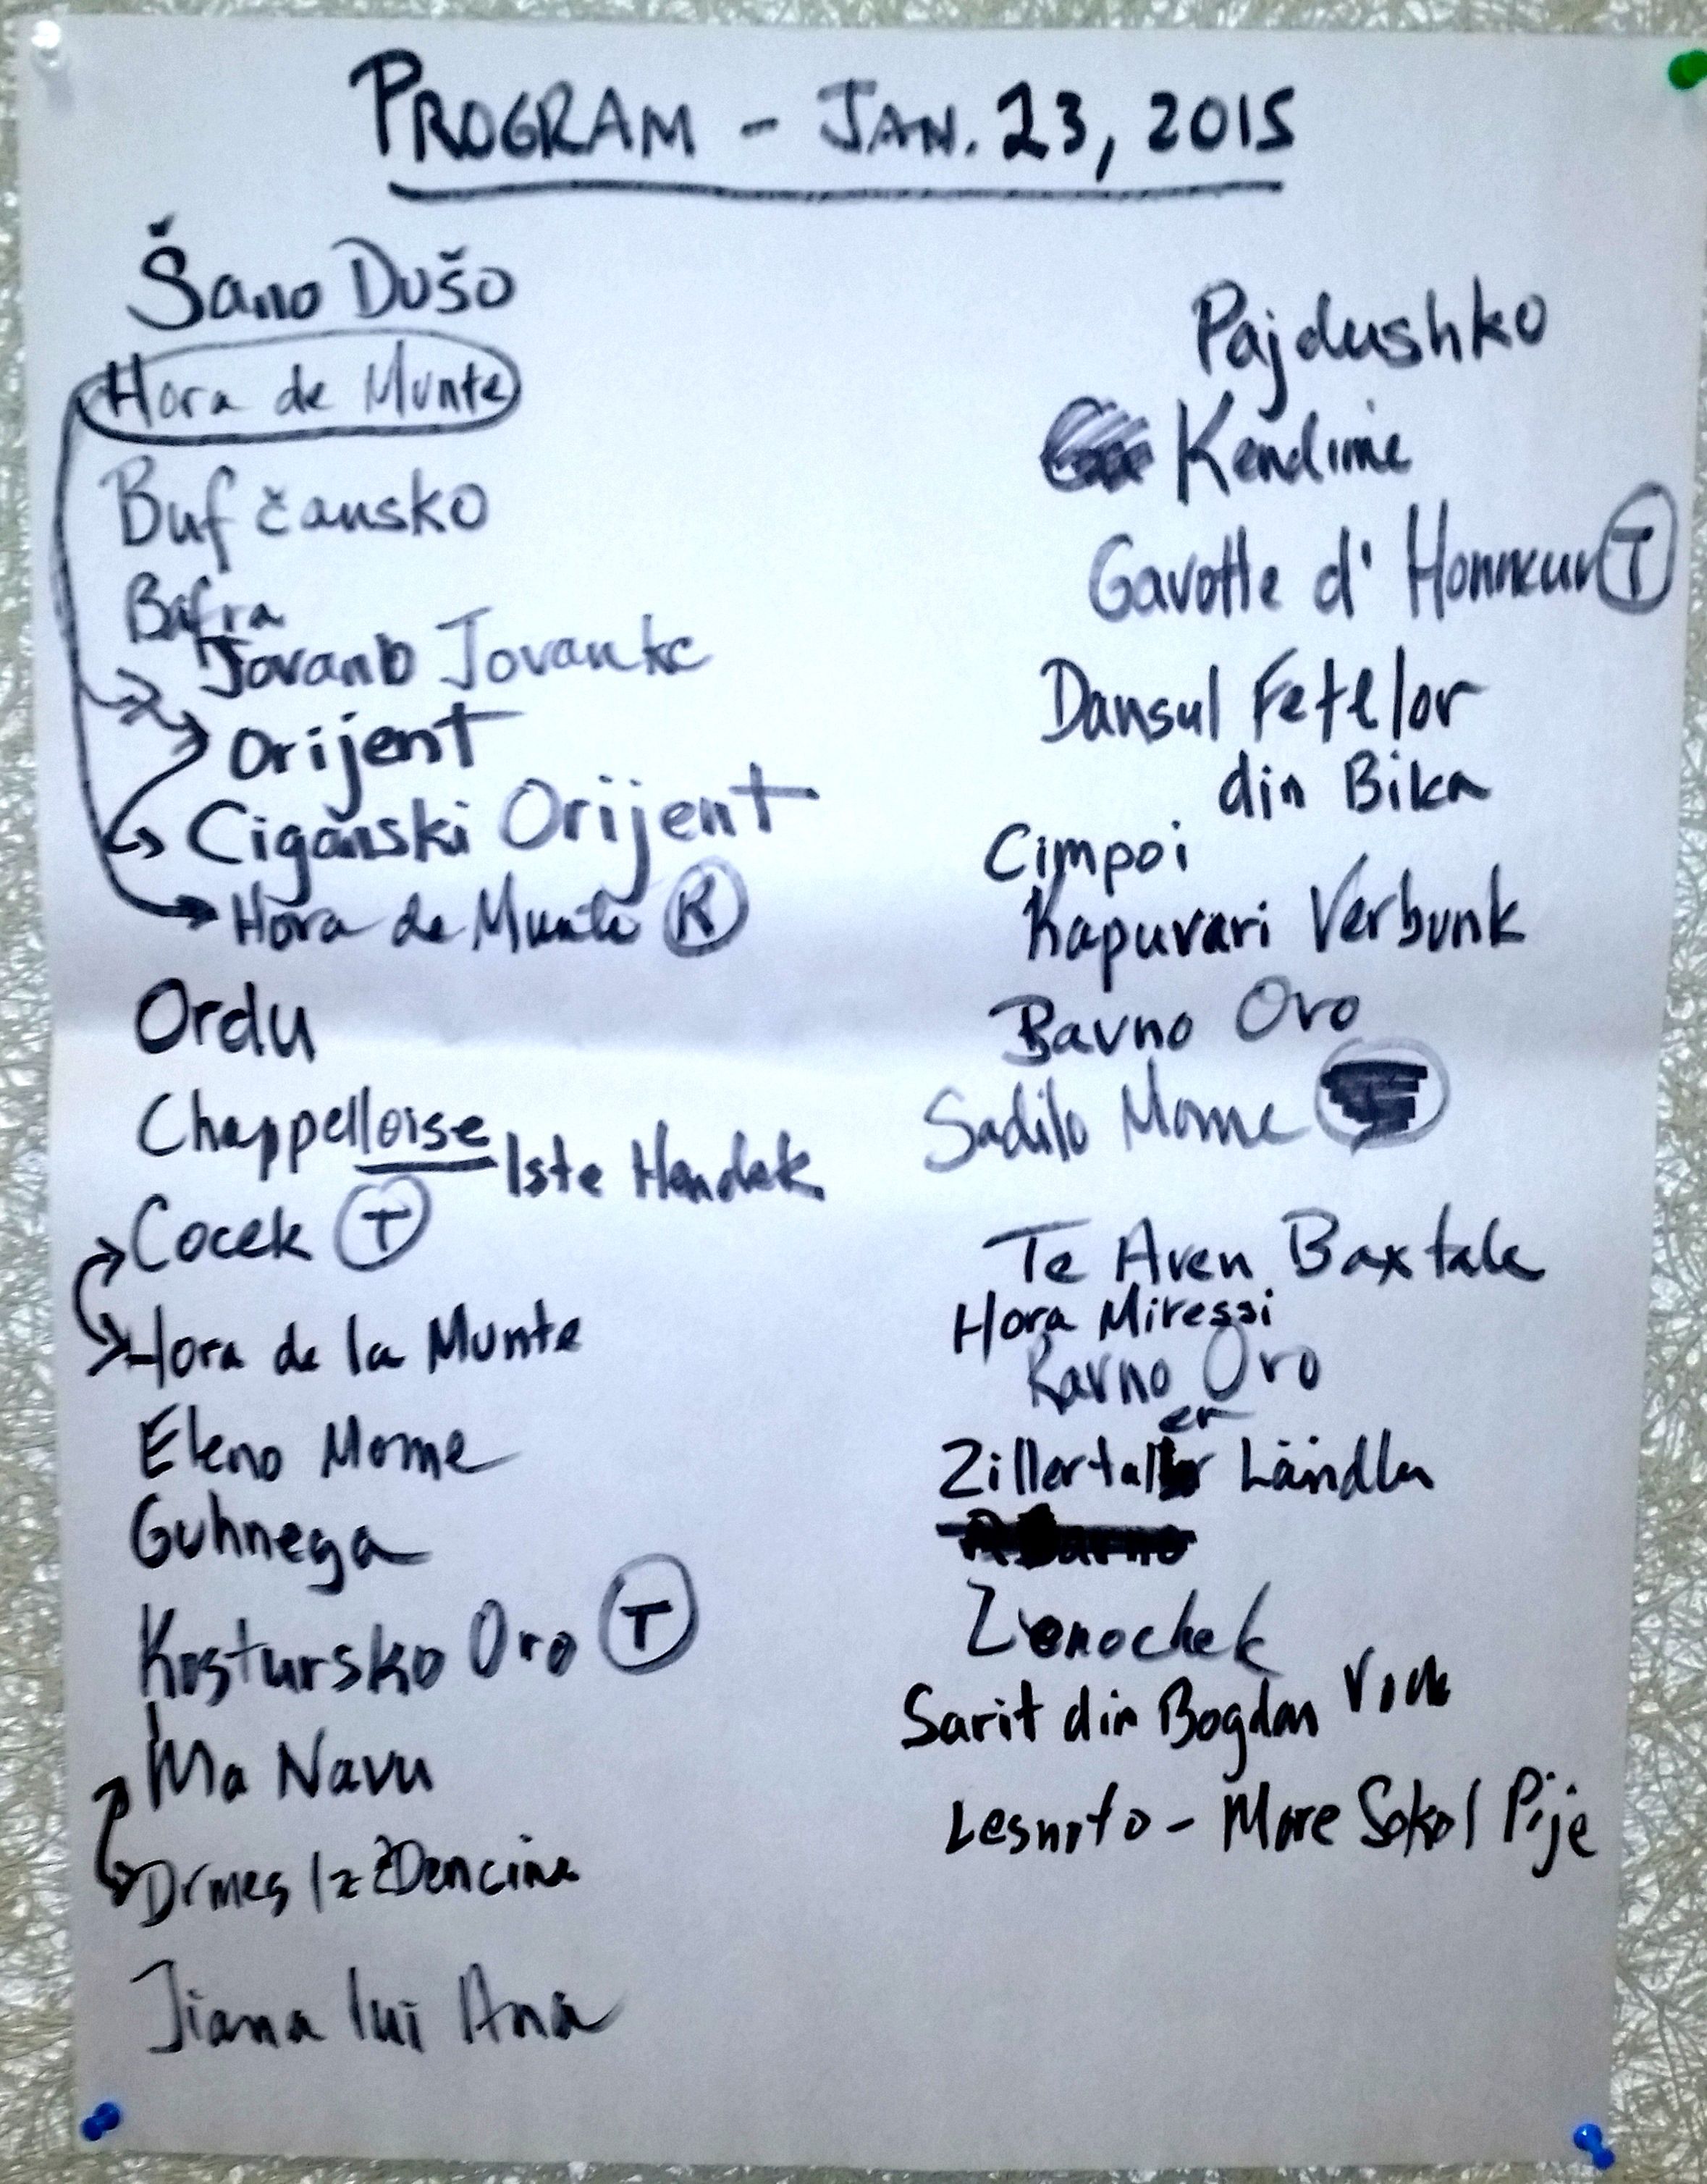 PROGRAM - JAN. 23, 2015
Šano Dušo
Hora de Munte
Bufčansko
Bafra
Jovano Jovanke
Orijent
Ciganski Orijent
Hora de Munte R
Ordu
Chappelloise
Iste Hendek
Cocek T
Hora de la Munte
Eleno Mome
Guhnega
Kostursko Oro T
Ma Navu
Drmes Iz Zdencina
Jiana lui Ana
Pajdushko
Kendime
Gavotte d' Honneur T
Dansul Fetelor
din Bika
Cimpoi
Kapuvari Verbunk
Bavno Oro
Sadilo Mome
Te Aven Baxtale
Hora Miressi
Ravno Oro
Zillertaler Ländler
Zenochek
Sarit din Bogdan Voda
Lesnoto - More Sokol Pije